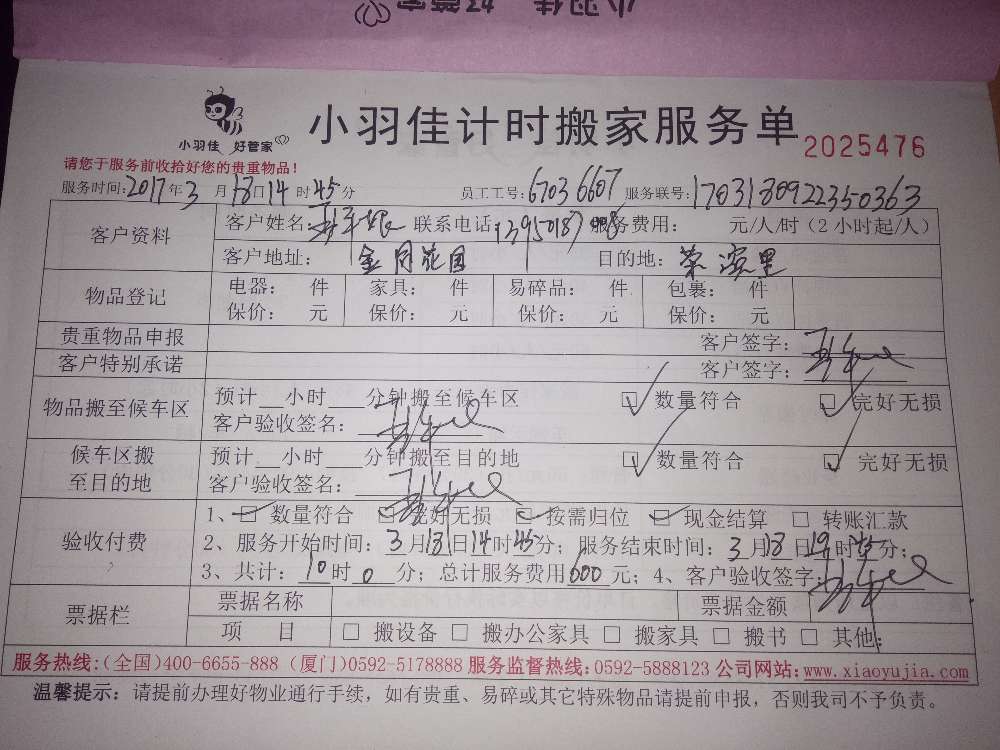 小羽佳 好管家
小羽佳 好管家
小羽佳计时搬家服务单
2025476
请您于服务前收拾好您的贵重物品！
服务时间：2017年3月18日14时45分 员工工号：6703 6607 服务联号：1703180922350363
客户资料 客户姓名： 联系电话： 服务费用： 元/人/时（2小时起/人）
客户地址： 金同花园 目的地： 荣滨里
物品登记 电器： 件 家具： 件 易碎品： 件 包裹： 件
保价： 元 保价： 元 保价： 元 保价： 元
贵重物品申报 客户签字：
客户特别承诺 客户签字：
物品搬至候车区 预计__小时___分钟搬至候车区 ☑ 数量符合 ☑ 完好无损
客户验收签名：
候车区搬至目的地 预计__小时___分钟搬至目的地 ☑ 数量符合 ☑ 完好无损
客户验收签名：
验收付费 1、☑ 数量符合 ☑ 完好无损 ☑ 按需归位 ☑ 现金结算 □ 转账汇款
2、服务开始时间：3月18日14时45分；服务结束时间：3月18日19时45分；
3、共计：10时0分；总计服务费用600元；4、客户验收签字：
票据栏 票据名称 票据金额
项 目 □ 搬设备 □ 搬办公家具 □ 搬家具 □ 搬书 □ 其他：
服务热线：(全国)400-6655-888（厦门)0592-5178888 服务监督热线：0592-5888123 公司网站：www.xiaoyujia.com
温馨提示：请提前办理好物业通行手续，如有贵重、易碎或其它特殊物品请提前申报，否则我司不予负责。